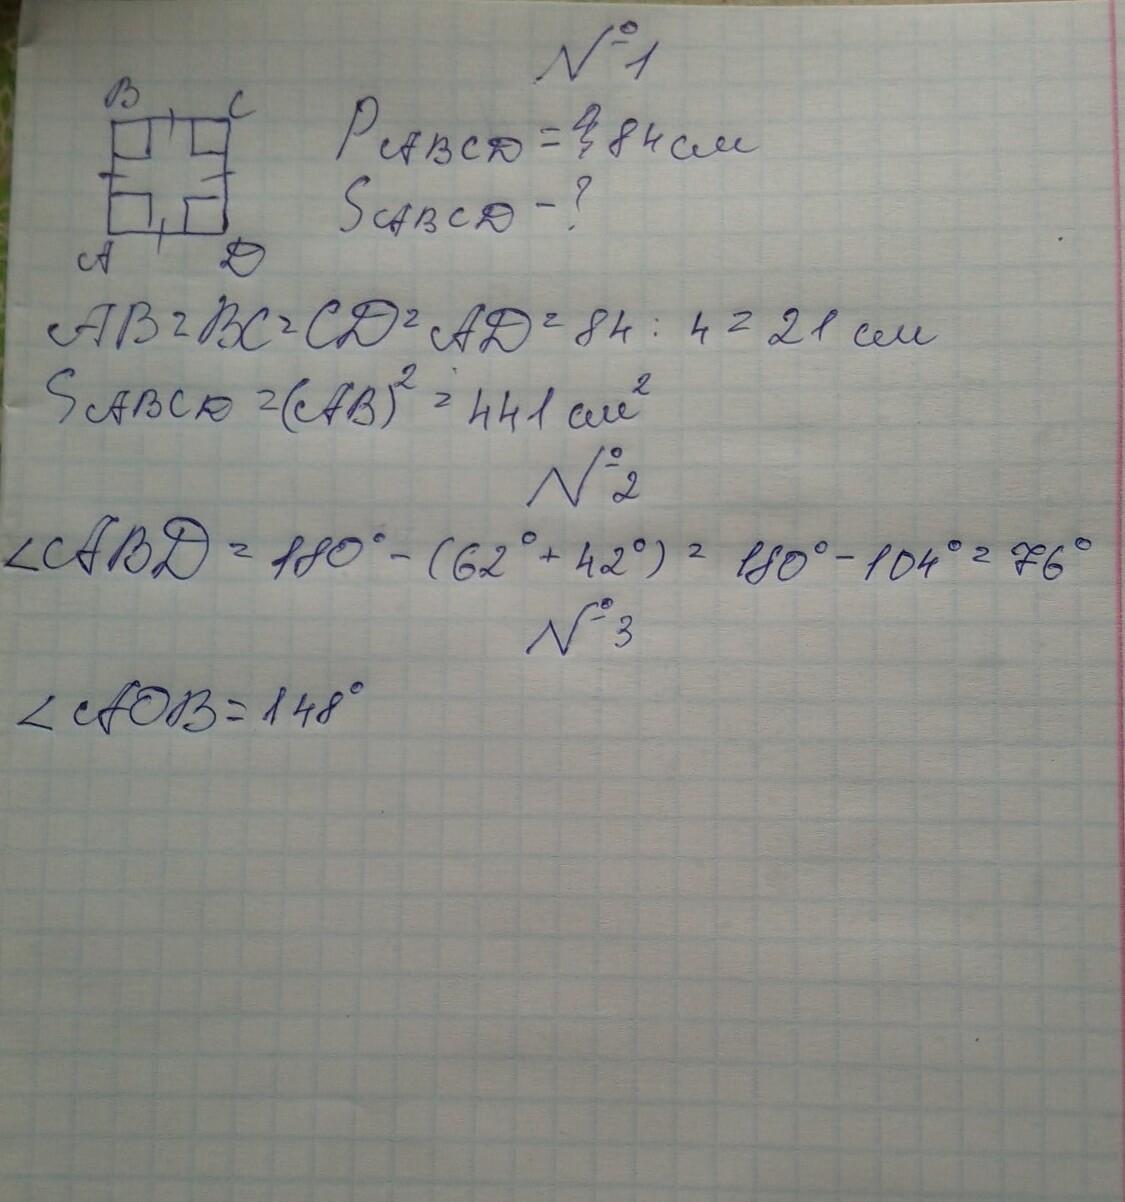 №1
B C
A D
P ABCD = 84 см
S ABCD - ?
AB = BC = CD = AD = 84 : 4 = 21 см
S ABCD = (AB)² = 441 см²
№2
∠ABD = 180° - (62° + 42°) = 180° - 104° = 76°
№3
∠AOB = 148°